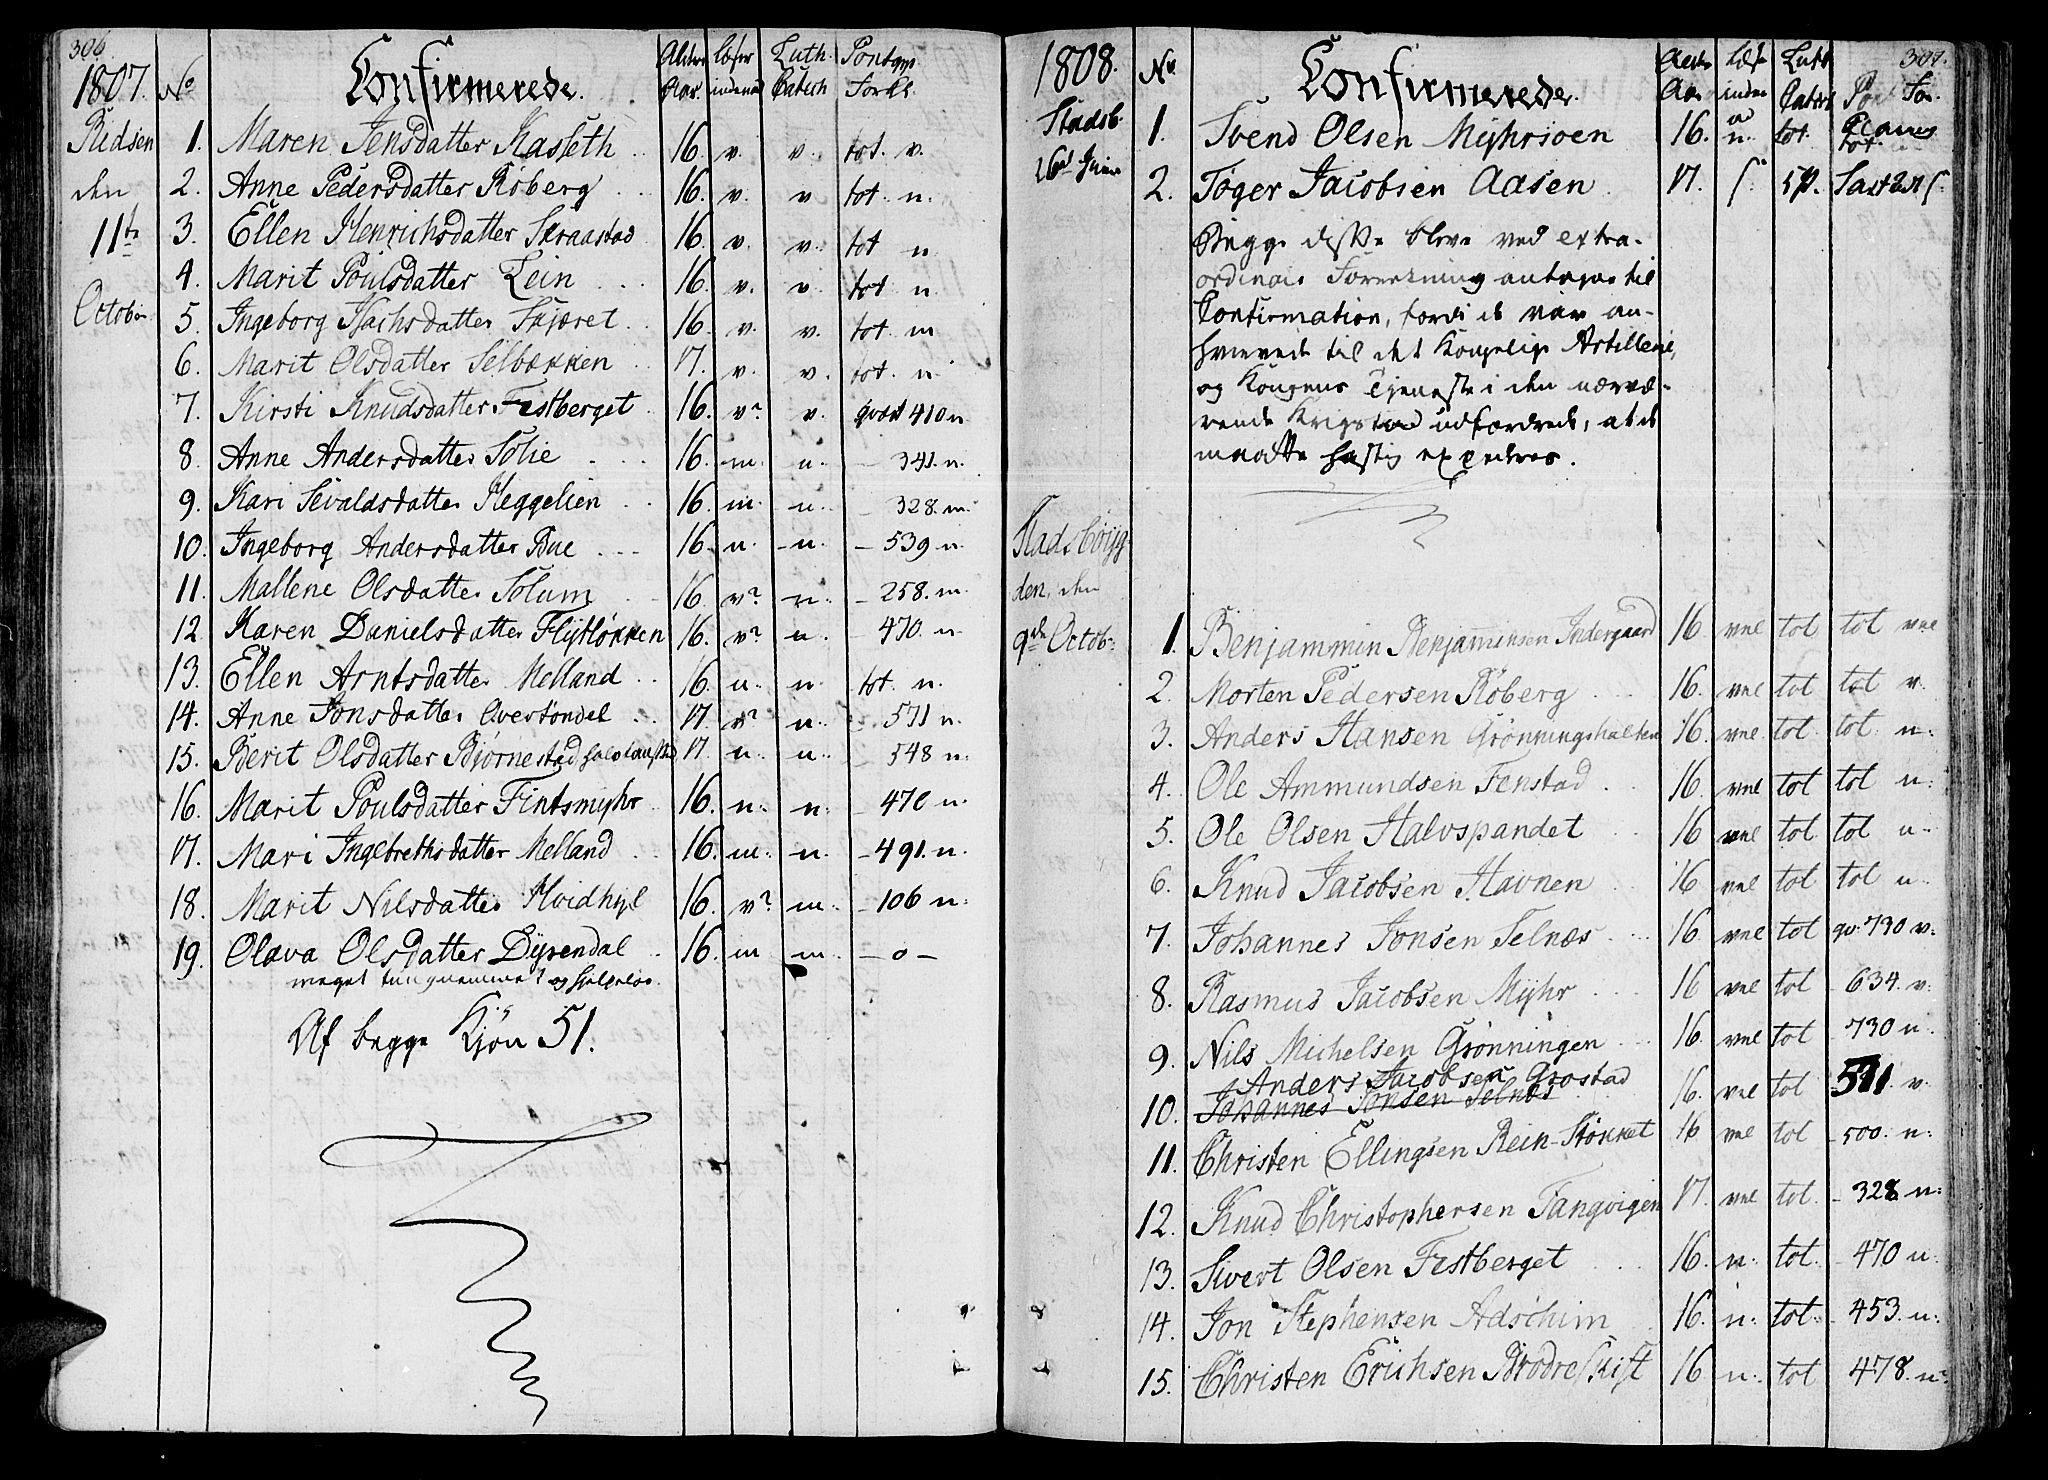 306.
1807. No Confirmerede. Alder Aar. læser indenad Luth. Catech Pontopp. Forkl.
Ridsen den 11te October
1. Maren Jensdatter Kasseth 16. v. v. tot. v.
2. Anne Pedersdatter Røberg 16. v. v tot. n.
3. Ellen Henrichsdatter Skraastad 16. v. v. tot n
4. Marit Poulsdatter Lein 16. v. v. tot n.
5. Ingeborg Isachsdatter Skjæret 16. v. v. tot. m
6. Marit Olsdatter Selbækken 17. v. v. tot. n
7. Kirsti Knudsdatter Festberget 16. v? v. qvæst 410 n.
8. Anne Andersdatter Solie 16. m. n. - 341. n.
9. Kari Sevaldsdatter Heggelien 16. m. n. - 328. m.
10. Ingeborg Andersdatter Bue 16. n. n. - 539 n.
11. Mallene Olsdatter Solum 16. v? n. - 258. m.
12. Karen Danielsdatter Flytløkken 16. v? n. - 470. n.
13. Ellen Arntsdatter Melland 16. n. n. tot. n.
14. Anne Jonsdatter Overstøndel 17 v? n. - 571 n.
15. Berit Olsdatter Bjørnestad 17. n. n. - 548 n.
16. Marit Poulsdatter Fintsmyhr 16. n. n. - 470 n.
17. Mari Ingebrethsdatter Melland 16. m. n. - 491. n.
18. Marit Nilsdatter Hvidhyl 16. v? m. - 106 n.
19. Olava Olsdatter Dyrendal 16. m m. - 0 -
meget tungnemmet og hielpeløs.
Af begge Kjøn 51.
307.
1808. No. Confirmerede. Alder Aar læse inden ad Luth Catech Pont For.
Stadsb. 26d Juni
1. Svend Olsen Myhrsoen 16. n. tot. tot.
2. Tøger Jacobsen Aasen 17.
Begge disse bleve ved extra-
ordinair Forretning antagne til
Confirmation, fordi de var an-
hvervede til det Kongelige Artillerie,
og Kongens Tjeneste i den nærvæ-
rende Krigstid udfordrede, at de
maatte hastig expederes.
Stadsbøyg
den, den
9de Octob:
1. Benjammin Benjaminsen Indergaard 16. vel tot tot vel
2. Morten Pedersen Røberg 16. vel tot tot v.
3. Anders Hansen Grønningshalten 16. vel tot. tot. n.
4. Ole Ammundsen Fenstad 16. vel tot tot n.
5. Ole Olsen Halvspandet 16 vel tot tot n.
6. Knud Jacobsen Havnen 16 vel tot tot n.
7. Johannes Jonsen Selnæs 16. vel tot qv. 730 v.
8. Rasmus Jacobsen Myhr 16 vel tot - 634. v.
9. Nils Michelsen Grønningen 16. vel tot - 730 n.
Anders Jacobsen Grostad
10. Johannes Jonsen Selnæs 16. vel tot 511 v.
11. Christen Ellingsen Rein-Støkket 16 vel tot - 500. n.
12. Knud Christophersen Tangvigen 17. vel tot. - 328 n.
13. Sivert Olsen Festberget 16. n. tot. - 470 n.
14. Jon Stephensen Askhim 16. n. tot. - 453. n.
15. Christen Erichsen Brødreskift 16 n. tot - 478. n.